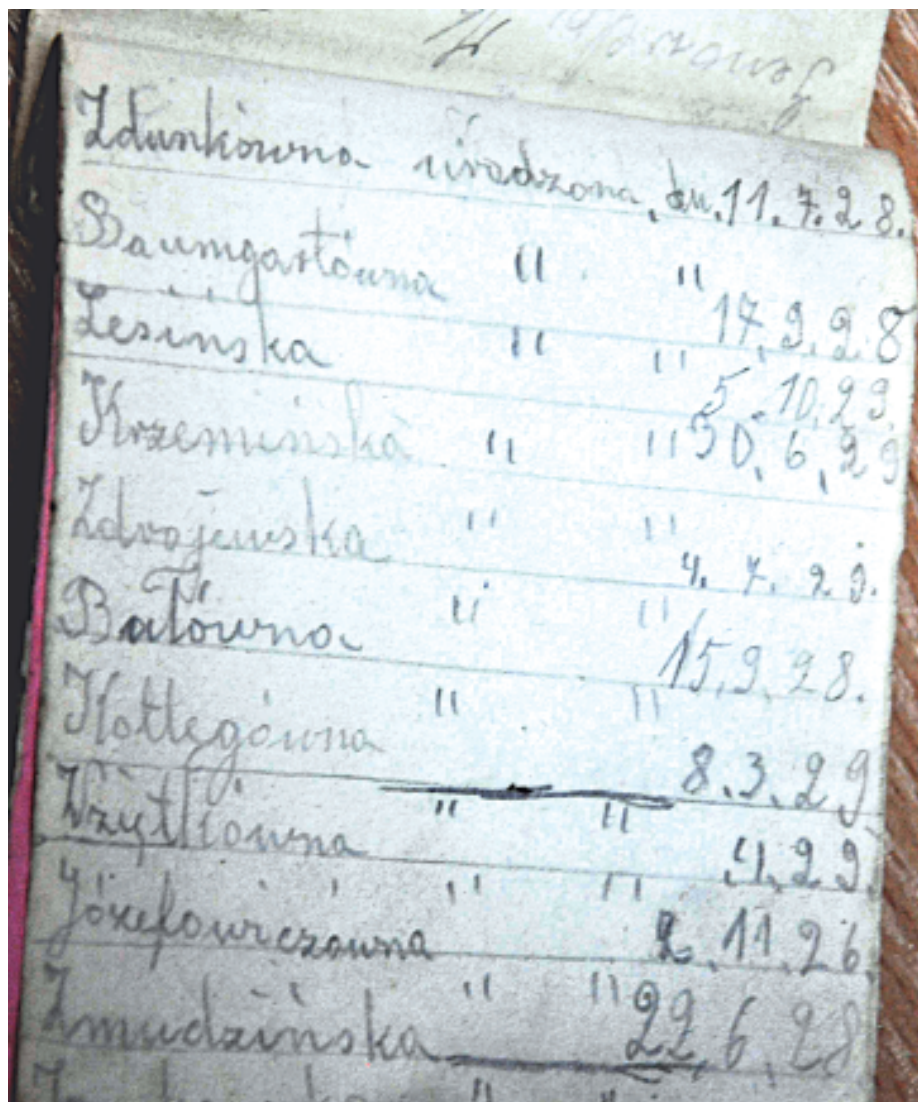 Zdunkówna urodzona dn. 11. 7. 2 8.
Baumgartówna " " 17. 9. 2 8
Lesińska " " 5. 10. 29.
Krzemińska " " 30. 6. 29
Zdrojewska " " 4. 7. 29.
Batówna " " 15. 9. 28.
Kottegówna " " 8. 3. 29
" " 4. 29.
Józefowiczówna " " 2. 11. 26.
Zmudzińska " " 22. 6. 28